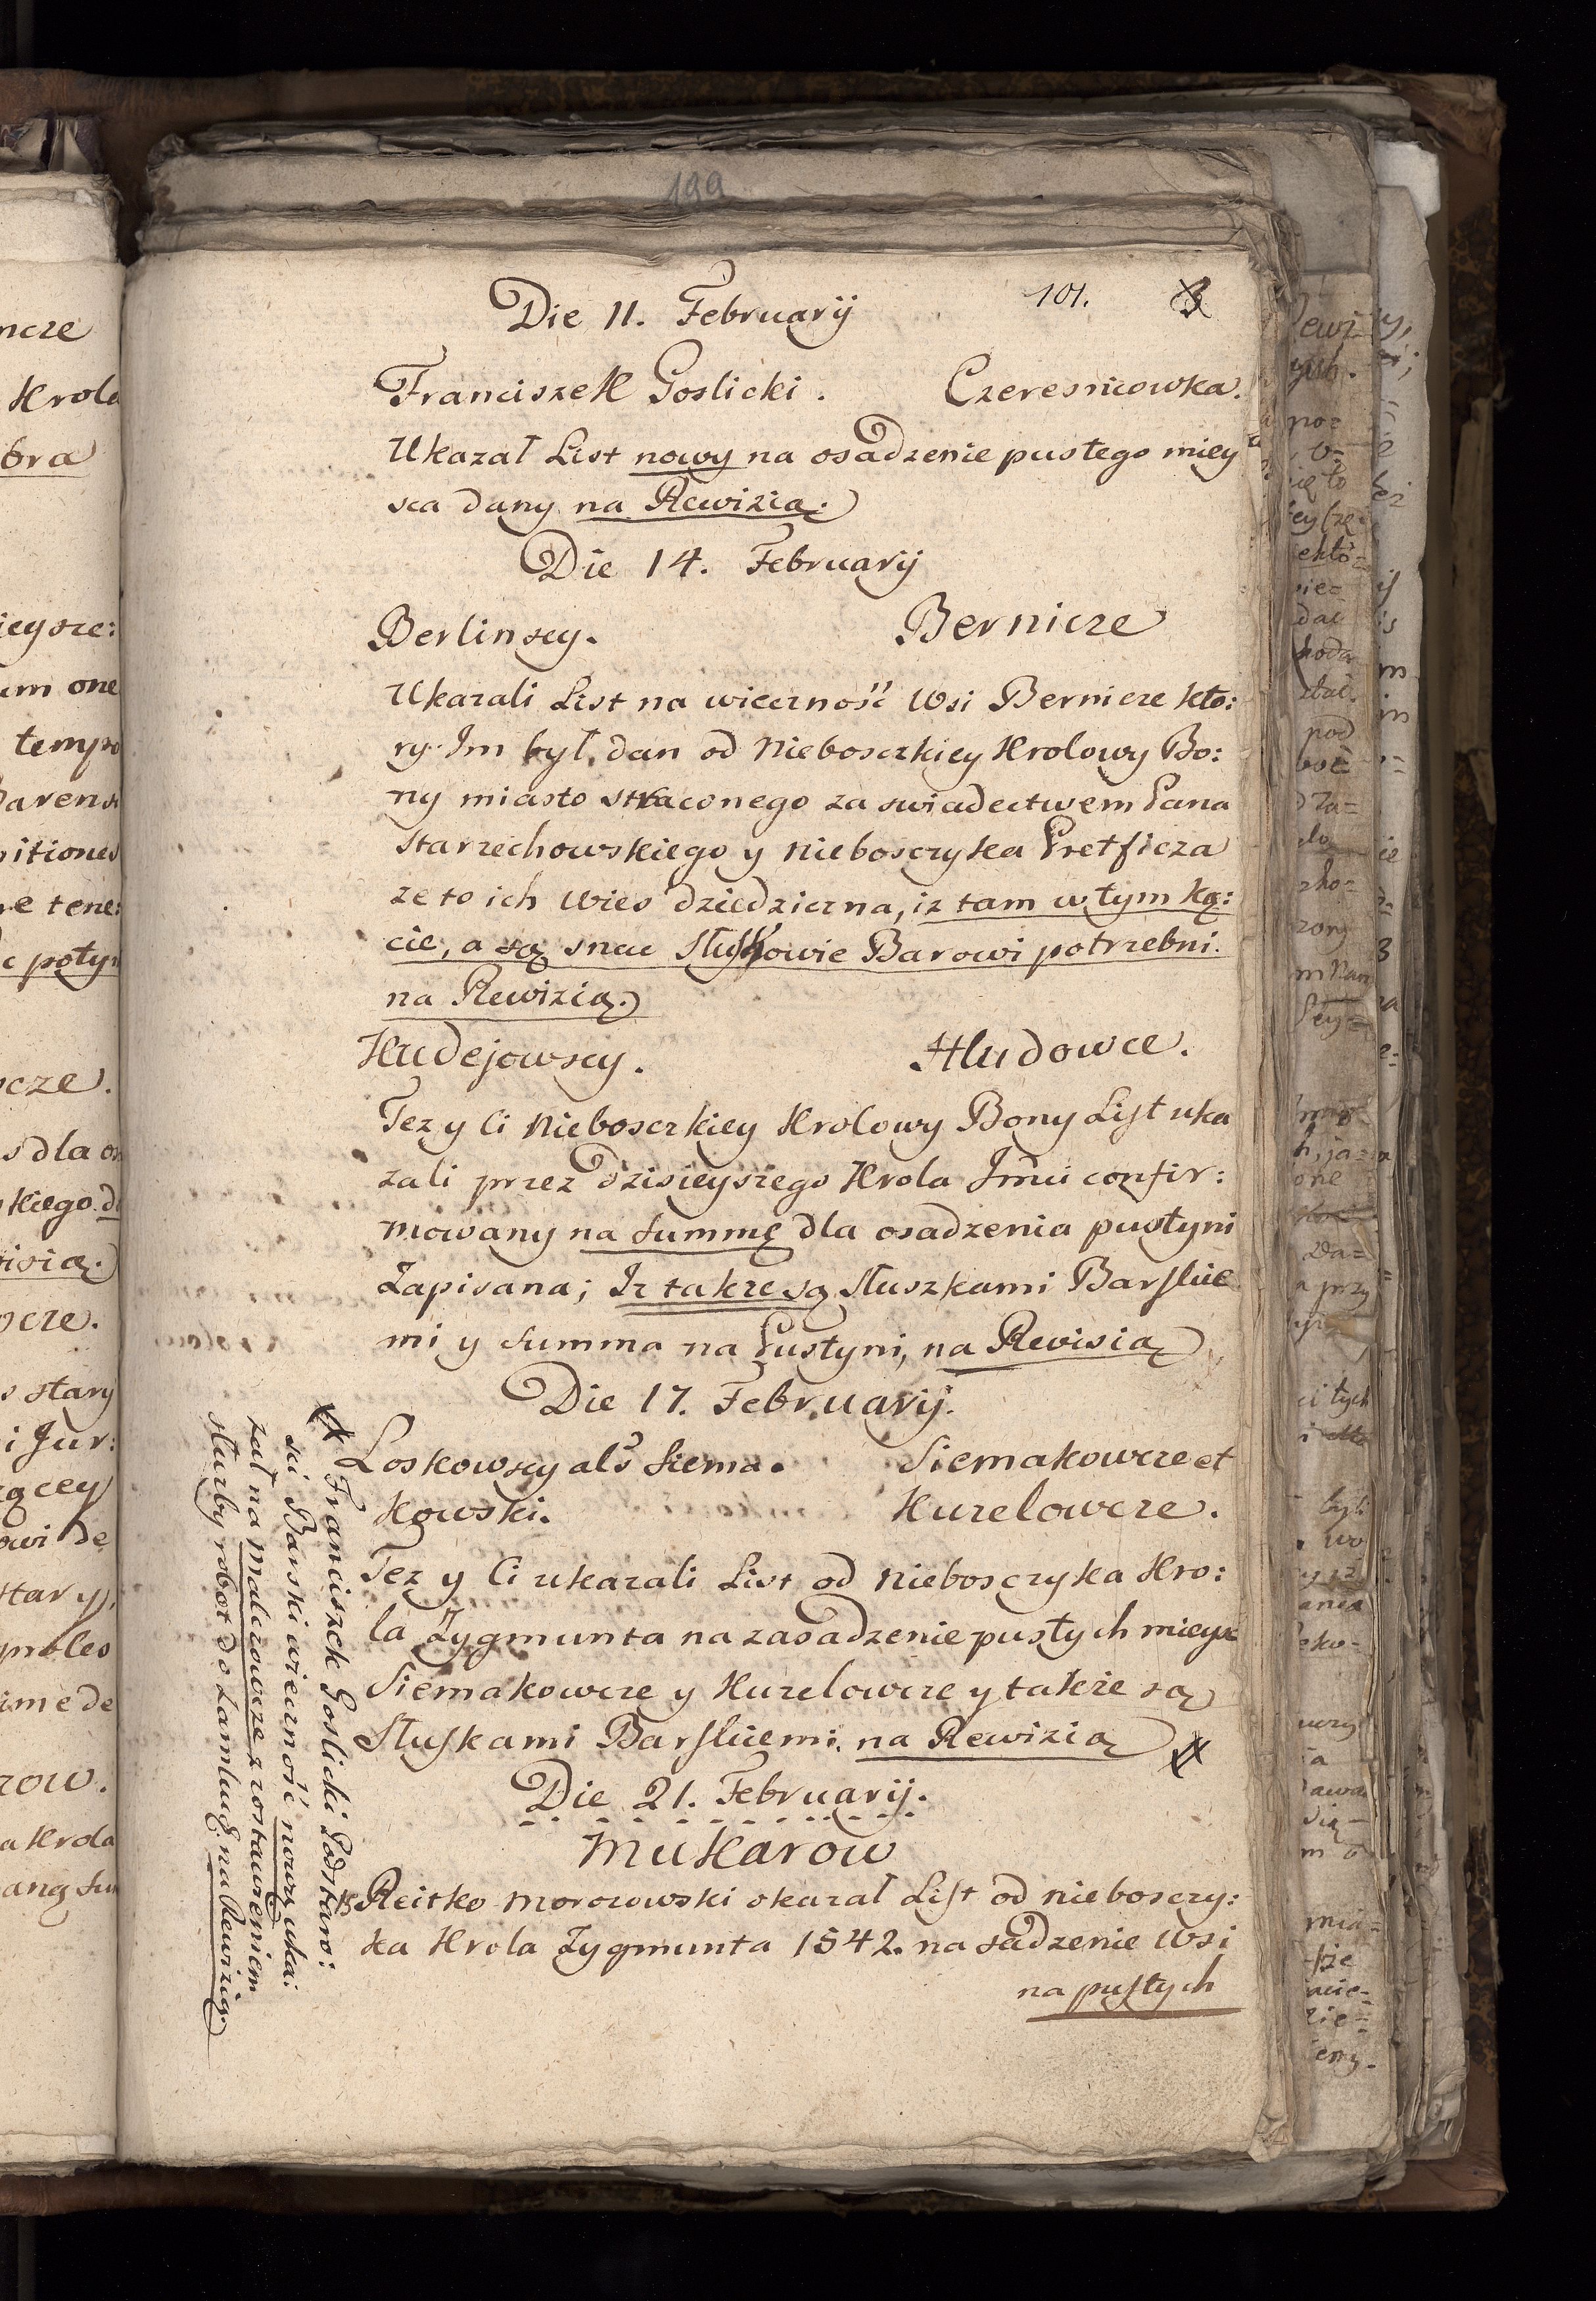 199
Die 11. Februarij 101.
Franciszek Goslicki. Czeresniowka.
Ukazał List nowy na osadzenie pustego miey
sca dany na Rewizią.
Die 14. Februarij
Berlinscy. Bernicze
Ukazali List na wieczność Wsi Bernicze kto:
ry Im był dan od Nieboszczkiey Krolowy Bo:
ny miasto straconego za swiadectwem Pana
Starzechowskiego y nieboszczyka Pretficza
ze to ich Wies dziedziczna, iz tam w tym ką:
cie, a są snac Służkowie Barowi potrzebni.
na Rewizią.
Hudejowscy. Hludowce.
Tez y Ci Nieboszczkiey Krolowy Bony List uka
zali przez dzisieyszego Krola Jmci confir:
mowany na Summę dla osadzenia pustyni
Zapisana; Iz takze są Słuszkami Barskie
mi y Summa na Pustyni, na Revisią
Die 17. Februarij.
Loskowscy als Siema. Siemakowcze et
kowski. Kuzelowcze.
Tez y Ci ukazali List od nieboszczyka Kro:
la Zygmunta na zasadzenie pustych mieysc
Siemakowcze y Kuzelowcze y takze są
Służkami Barskiemi. na Rewizią
Die 21. Februarij.
Mukarow
Reitko Morozowski okazał List od nieboszczy:
ka Krola Zygmunta 1542. na sadzenie Wsi
na pustych
Franciszek Goslicki Podstaro:
sci Barski wieczność nową uka:
zał na Malczowcze z zostawieniem
służby robot do Zamku. na Rewizią.